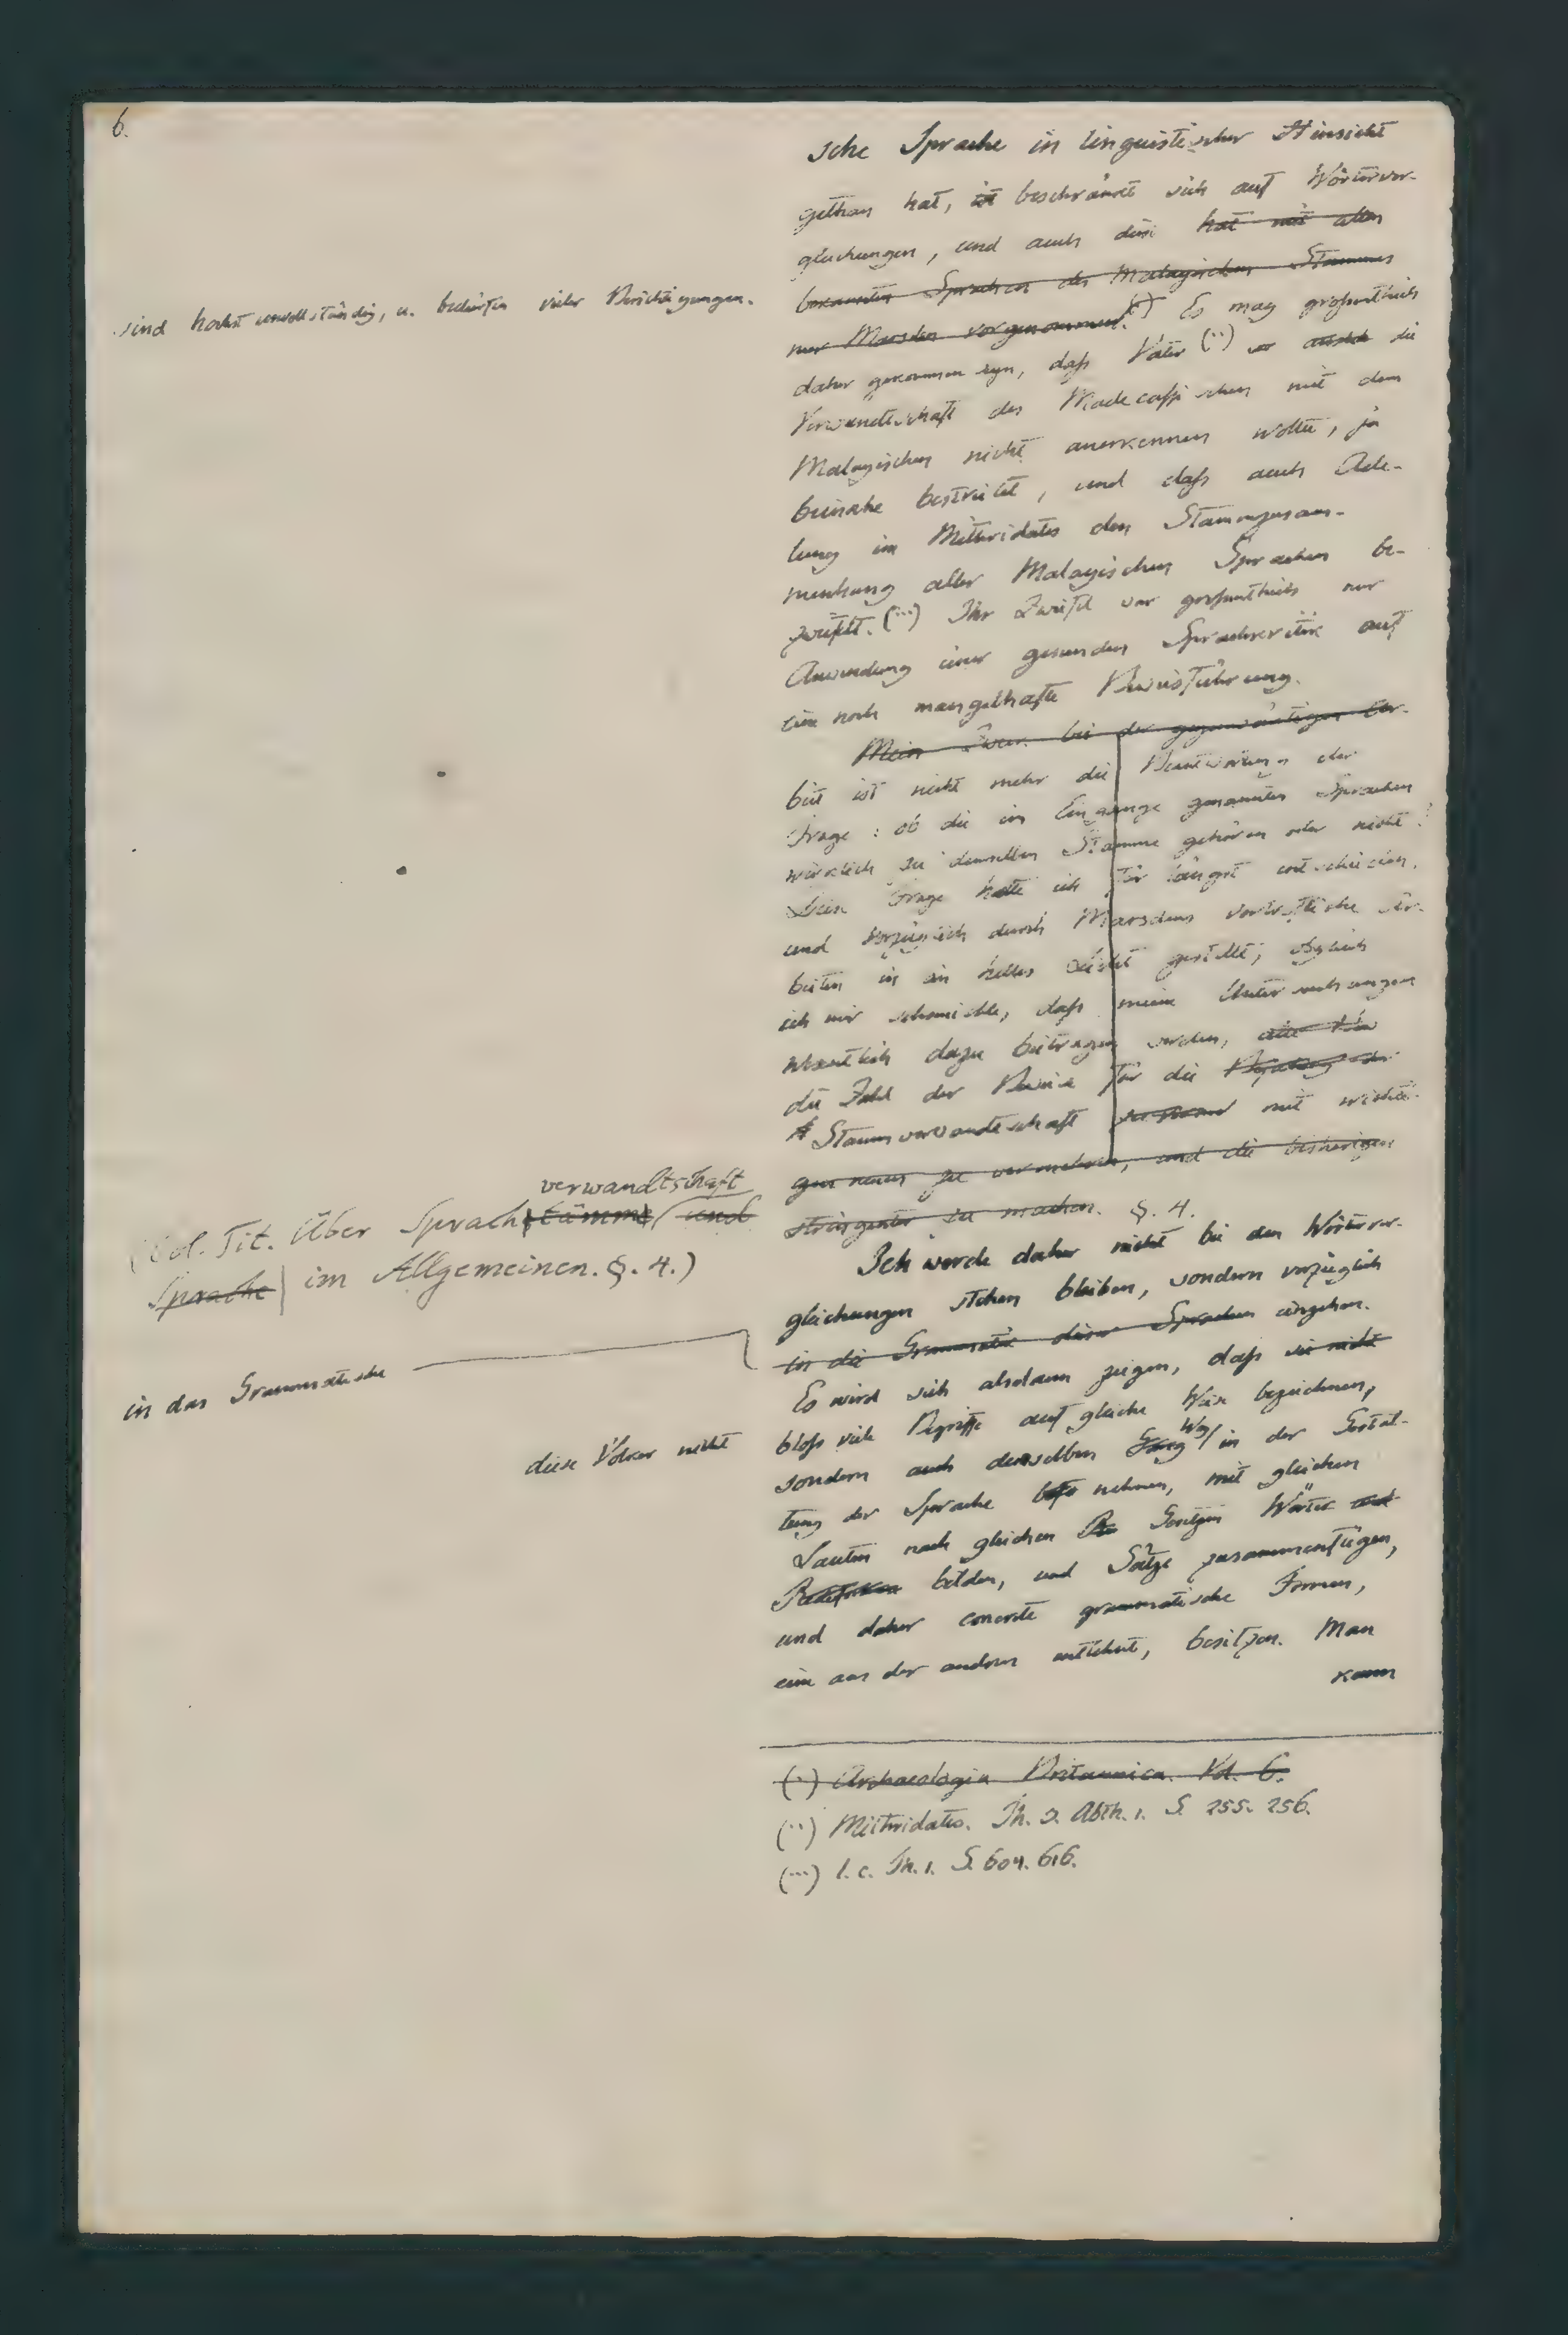 6.
sche Sprache in linguistischer Hinsicht
gethan hat, ist beschränkt sich auf Wörterver-
gleichungen, und auch diese hat mit allen
bekannten Sprachen des Malayischen Stammes
nur Marsden vorgenommen.(·) Es mag grofsentheils
sind höchst unvollständig, u. bedürfen vieler Berichtigungen.
daher gekommen seyn, dafs Vater (··) die
Verwandtschaft des Madecassischen mit dem
Malayischen nicht anerkennen wollte, ja
beinahe bestreitet, und dafs auch Ade-
lung im Mithridates den Stammzusam-
menhang aller Malayischen Sprachen be-
zweifelt. (···) Ihr Zweifel war grofsentheils nur
Anwendung einer gesunden Sprachkritik auf
eine noch mangelhafte Beweisführung.
Mein Zweck bei der gegenwärtigen Ar-
beit ist nicht mehr die Beantwortung der
Frage: ob die im Eingange genannten Sprachen
wirklich zu demselben Stamme gehören oder nicht?
Diese Frage halte ich für längst entschieden,
und vorzüglich durch Marsdens vortreffliche Ar-
beiten in ein helles Licht gestellt, obgleich
ich mir schmeichle, dafs meine Untersuchungen
wesentlich dazu beitragen werden,
die Zahl der Beweise für die
Stammverwandtschaft mit wichti-
gen neuen zu vermehren, und die bisherigen
stringenter zu machen. §. 4.
verwandtschaft
(Col. Tit. Über Sprachstämme und
Sprache im Allgemeinen. §. 4.)
Ich werde daher nicht bei den Wörterver-
gleichungen stehen bleiben, sondern vorzüglich
in die Grammatik dieser Sprachen eingehen.
in das Grammatische
Es wird sich alsdann zeigen, dafs sie nicht
diese Völker nicht
blofs viele Begriffe auf gleiche Weise bezeichnen,
sondern auch denselben Gang Weg in der Gestal-
tung der Sprache nehmen, mit gleichen
Lauten nach gleichen Gesetzen Wörter und
bilden, und Sätze zusammenfügen,
und daher concrete grammatische Formen,
eine aus der andren entlehnt, besitzen. Man
kann
(·) Archaeologia Britannica. Vol. 6.
(··) Mithridates. Th. 3. Abth. 1. S. 255. 256.
(···) l. c. Th. 1. S. 604. 616.